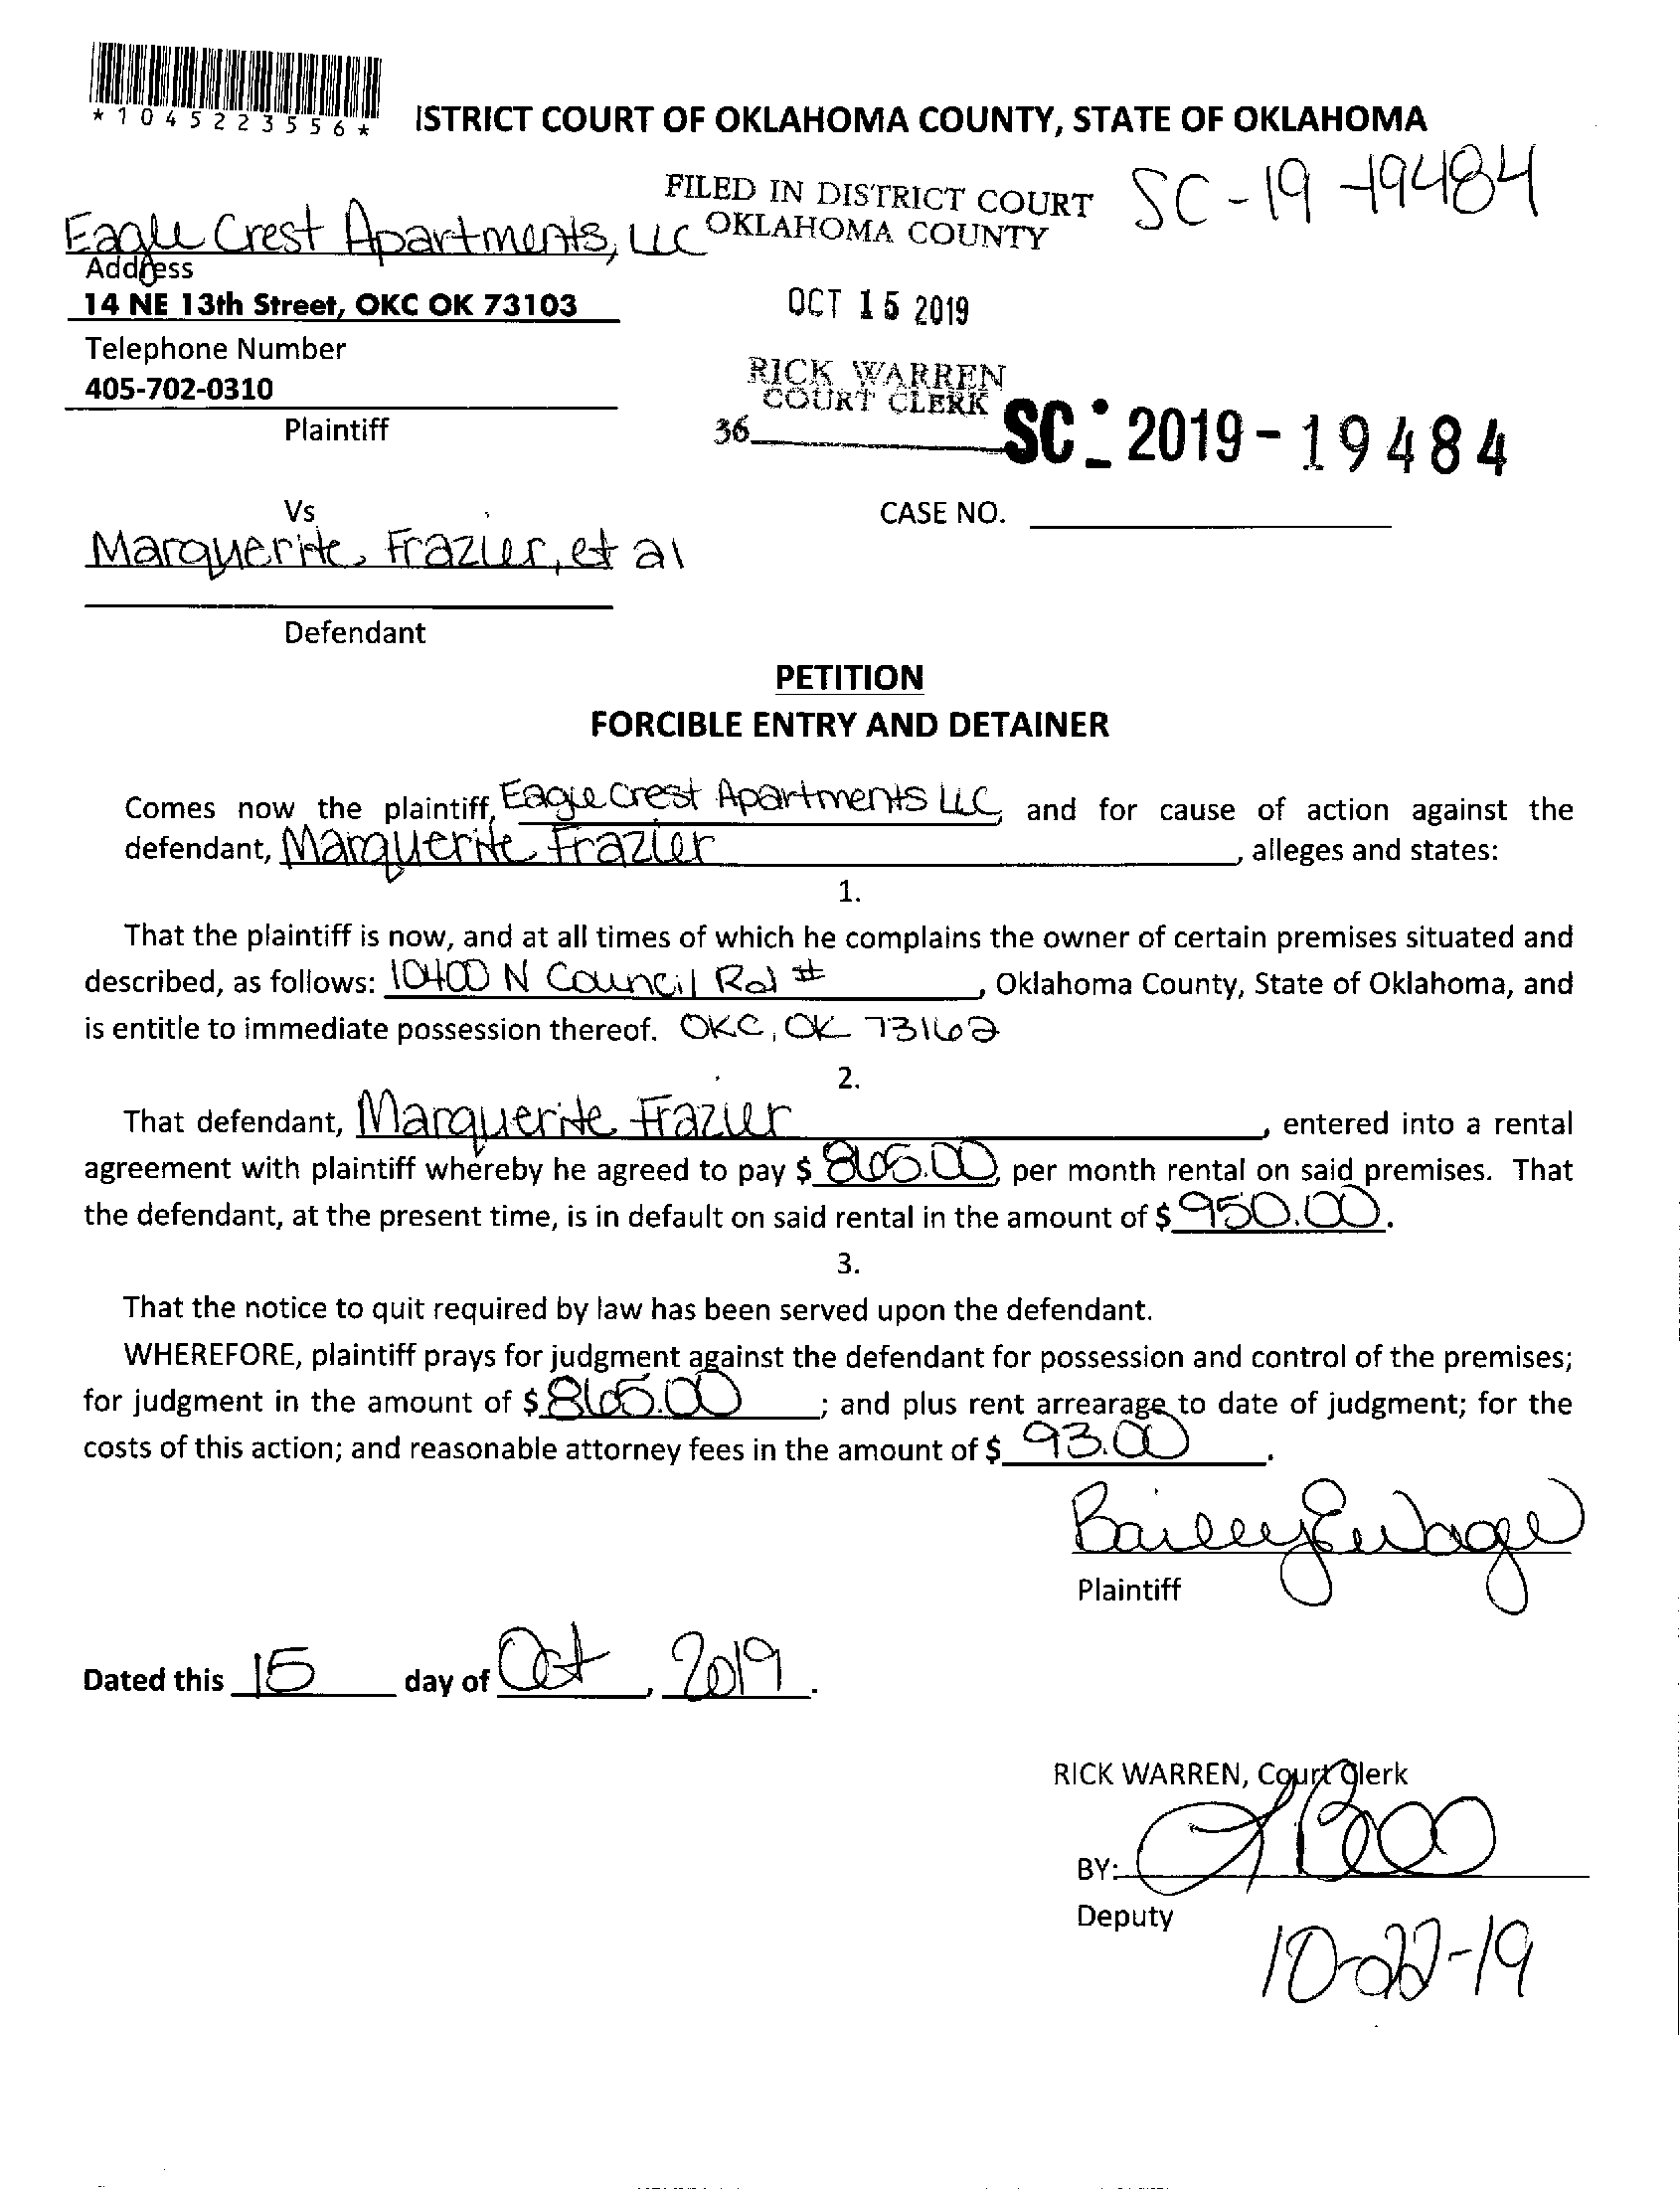 *1045223556*
ISTRICT COURT OF OKLAHOMA COUNTY, STATE OF OKLAHOMA
SC-19-19484
FILED IN DISTRICT COURT
OKLAHOMA COUNTY
Eagle Crest Apartments, LLC
Address
14 NE 13th Street, OKC OK 73103
OCT 15 2019
Telephone Number
405-702-0310
RICK WARREN
COURT CLERK
Plaintiff
36
SC - 2019 - 19484
Vs
CASE NO.
Marguerite Frazier, et al
Defendant
PETITION
FORCIBLE ENTRY AND DETAINER
Comes now the plaintiff, Eagle Crest Apartments LLC, and for cause of action against the
defendant, Marguerite Frazier, alleges and states:
1.
That the plaintiff is now, and at all times of which he complains the owner of certain premises situated and
described, as follows: 10400 N Council Rd #, Oklahoma County, State of Oklahoma, and
is entitle to immediate possession thereof. OKC, OK 73162
2.
That defendant, Marguerite Frazier, entered into a rental
agreement with plaintiff whereby he agreed to pay $ 865.00, per month rental on said premises. That
the defendant, at the present time, is in default on said rental in the amount of $ 950.00.
3.
That the notice to quit required by law has been served upon the defendant.
WHEREFORE, plaintiff prays for judgment against the defendant for possession and control of the premises;
for judgment in the amount of $ 865.00; and plus rent arrearage to date of judgment; for the
costs of this action; and reasonable attorney fees in the amount of $ 93.00.
Plaintiff
Dated this 15 day of Oct, 2019.
RICK WARREN, Court Clerk
BY:
Deputy
10-22-19